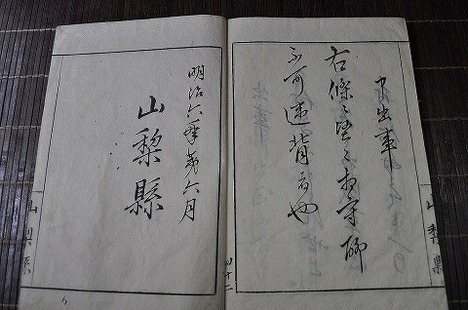 申出事
右條々堅ク相守聊
不可違背者也
明治六年第六月
山梨縣
山梨縣
山梨縣